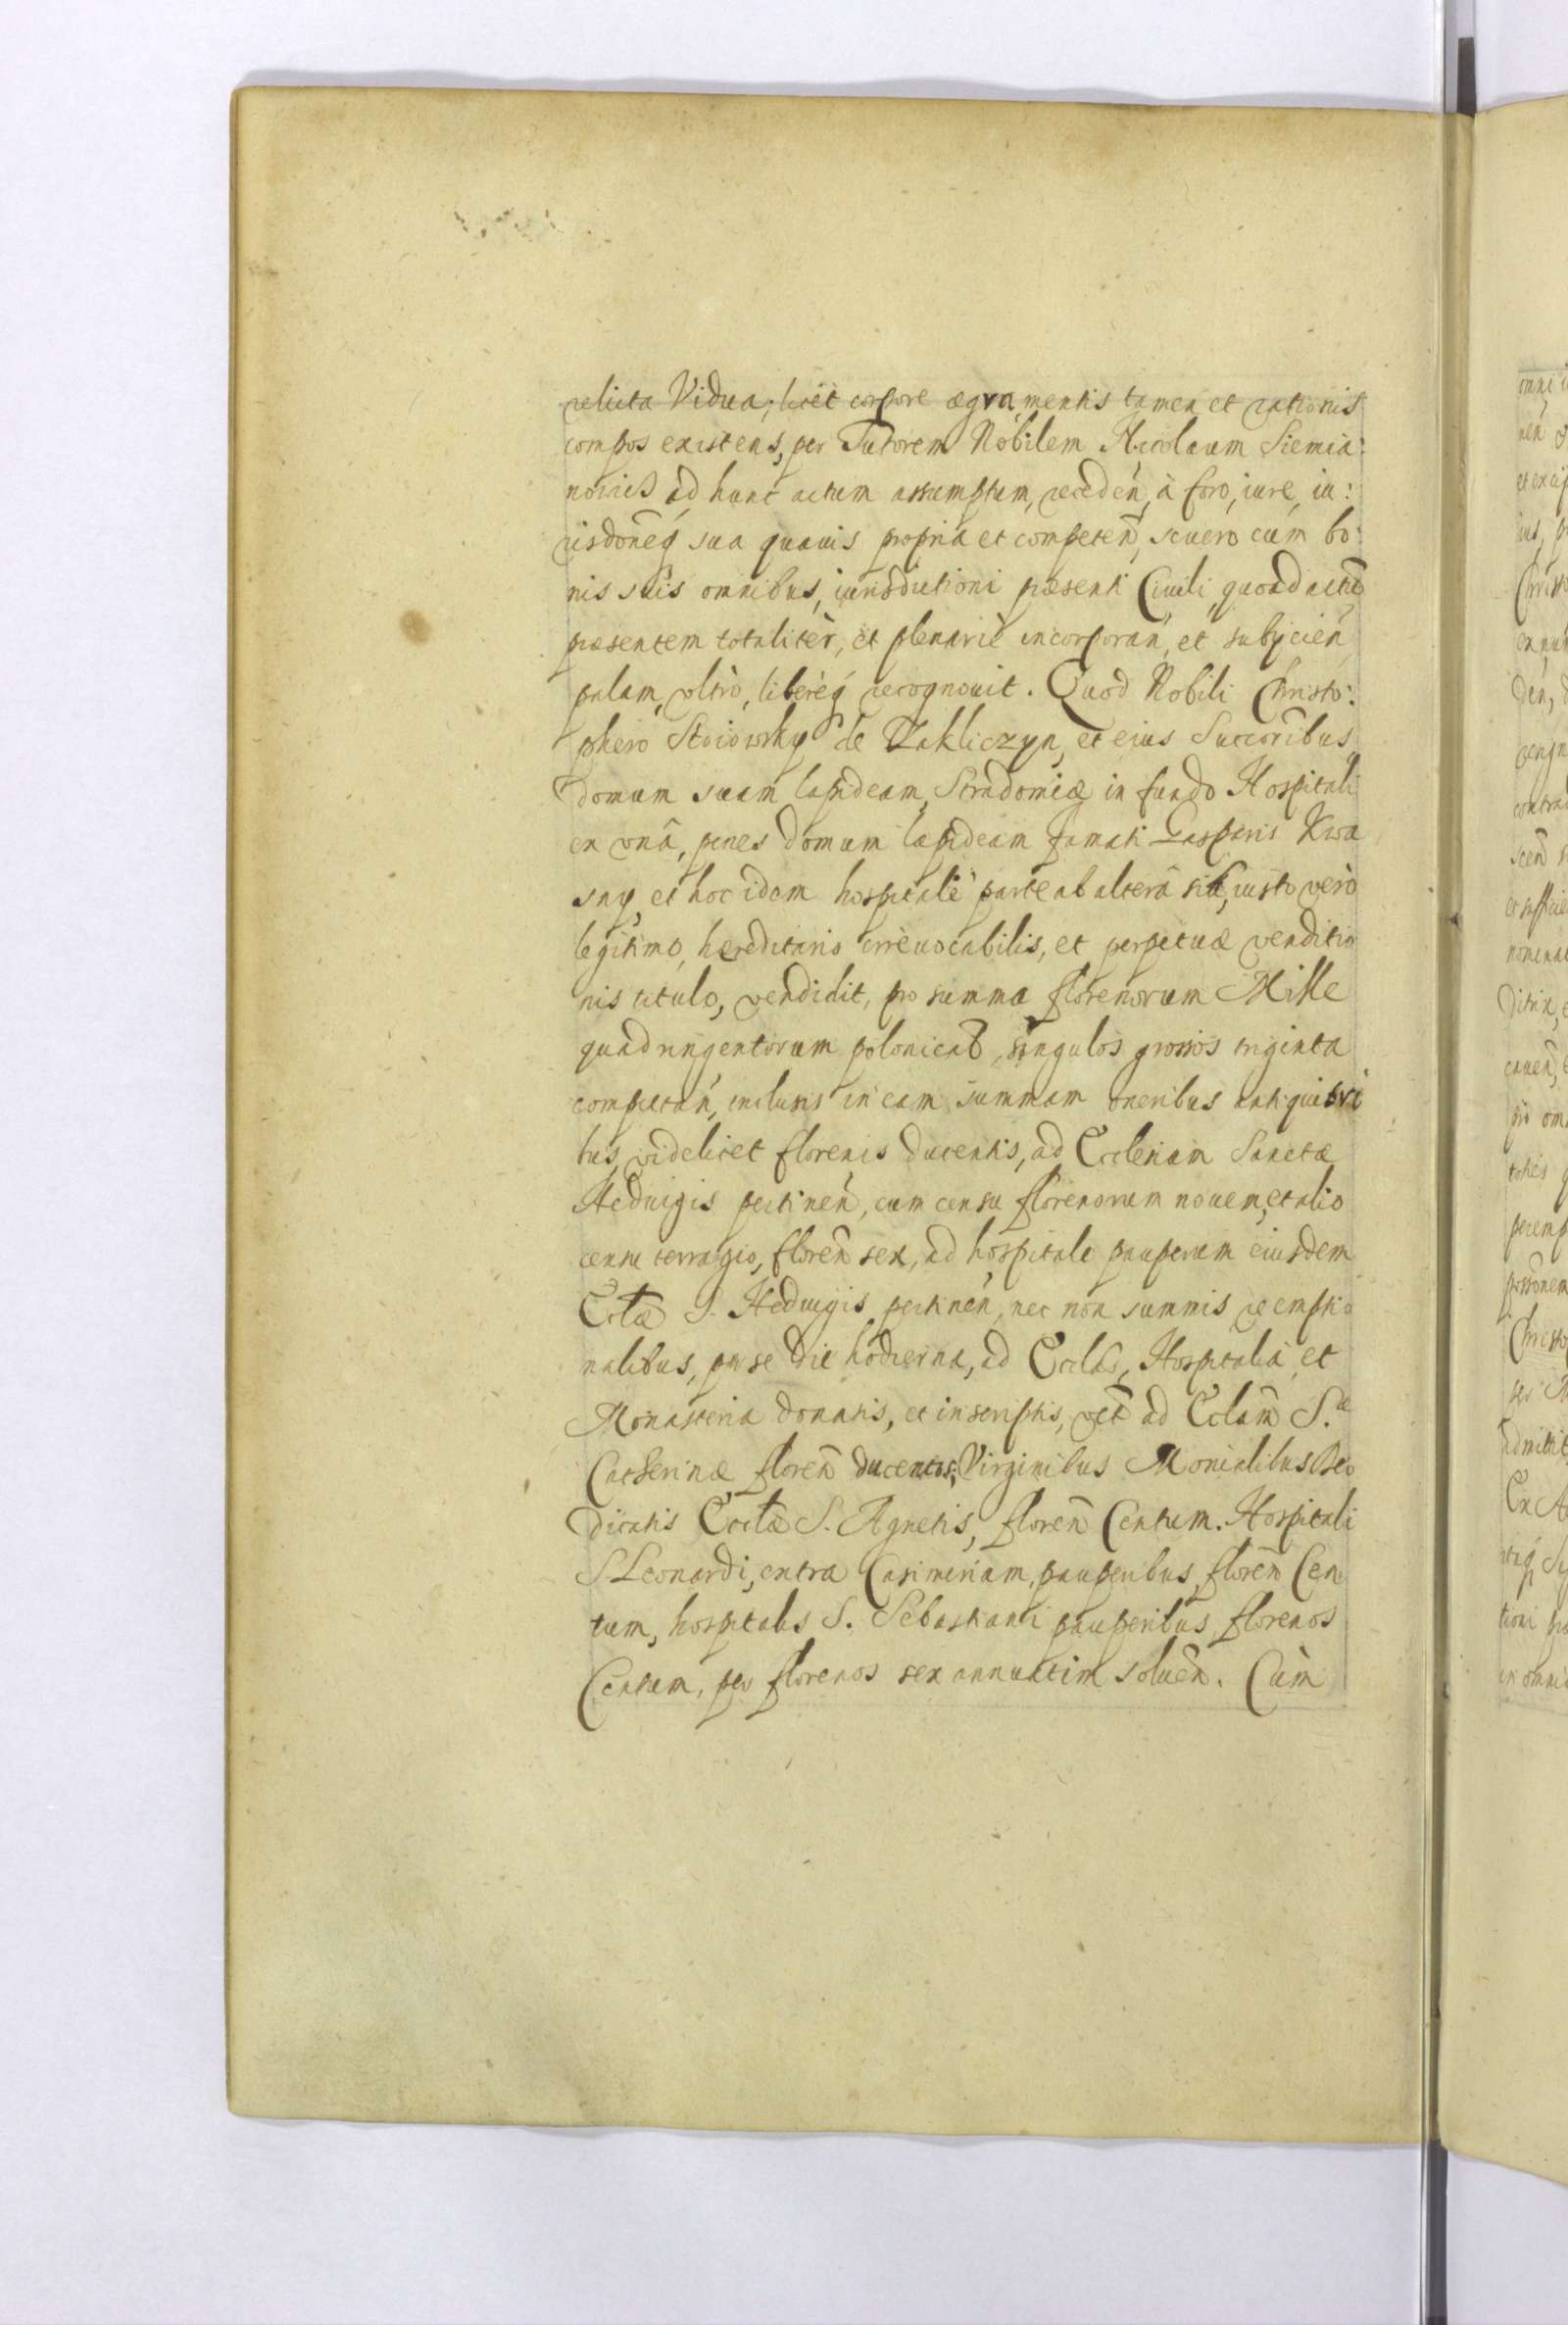 relicta Vidua, licet corpore ægra, mentis tamen et rationis
compos existens, per Tutorem Nobilem Nicolaum Siemia:
nowicz ad hunc actum assumptum, receden̄, à foro, iure, iu:
risdon̄eq́ sua quauis propria et competen̄, seuero cum bo:
nis suis omnibus, iurisdictioni præsenti Ciuili, quoad actū
præsentem totalitèr, et plenariè incorporan̄, et subijcien̄,
palam, vltrò, liberèq́ recognouit. Quod Nobili Christo:
phero Stoiowsky de Zakliczyn, et eius Succoribus
domum suam lapideam, Stradomiæ in fundo Hospitali
ex vnâ, penes domum lapideam famati Gasparis Kwa
sny, et hoc idem hospitale parte ab alterâ sitā, iusto verò
legitimo, hæreditario irreuocabilis, et perpetuæ venditio
nis titulo, vendidit, pro summa florenorum Mille
quadringentorum polonical, singulos grossos triginta
computan̄, inclusis in eam summam oneribus antiquiori
bus, videlicet florenis ducentis, ad Ecclesiam Sanctæ
Heduigis pertinen̄, cum censu florenorum nouem, et alio
censu terragio, floren̄ sex, ad hospitale pauperum eiusdem
Ecclæ S. Heduigis pertinen̄, nec non summis reemptio
nalibus, per se die hodierna, ad Ecclas, Hospitalia, et
Monasteria donatis, et inscriptis, vct̄ ad Eclam̄ S.æ
Catherinæ floren̄ ducentos, Virginibus Monialibus Deo
dicatis Ecclæ S. Agnetis, floren̄ Centum. Hospitali
S Leonardi, extra Casimiriam, pauperibus, floren̄ Cen
tum, hospitalis S. Sebastiani pauperibus florenos
Centum, per florenos sex annuatim soluen̄. Cum